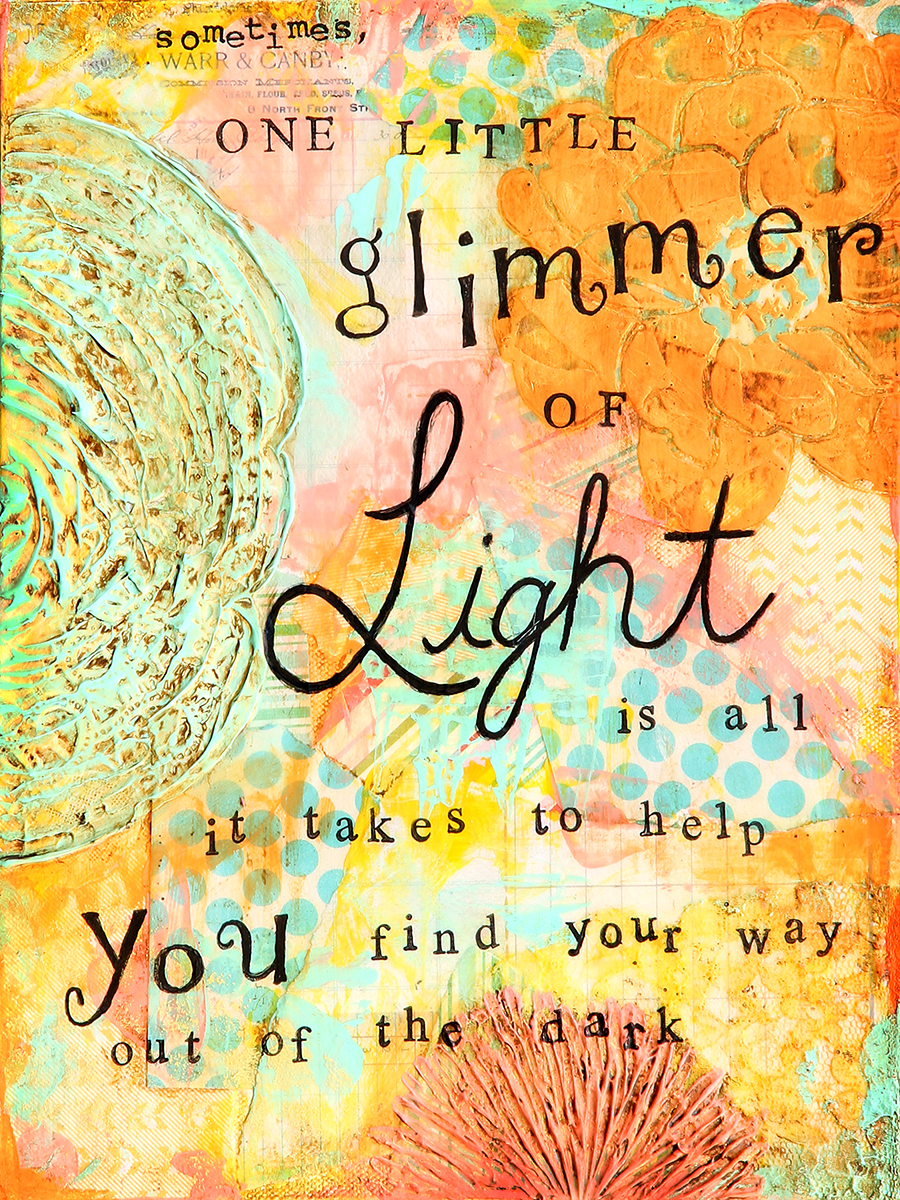 sometimes,
WARR & CANBY,
COMMISSION MERCHANTS,
FLOUR,
NORTH FRONT
ONE LITTLE
glimmer
OF
Light
is all
it takes to help
you find your way
out of the dark